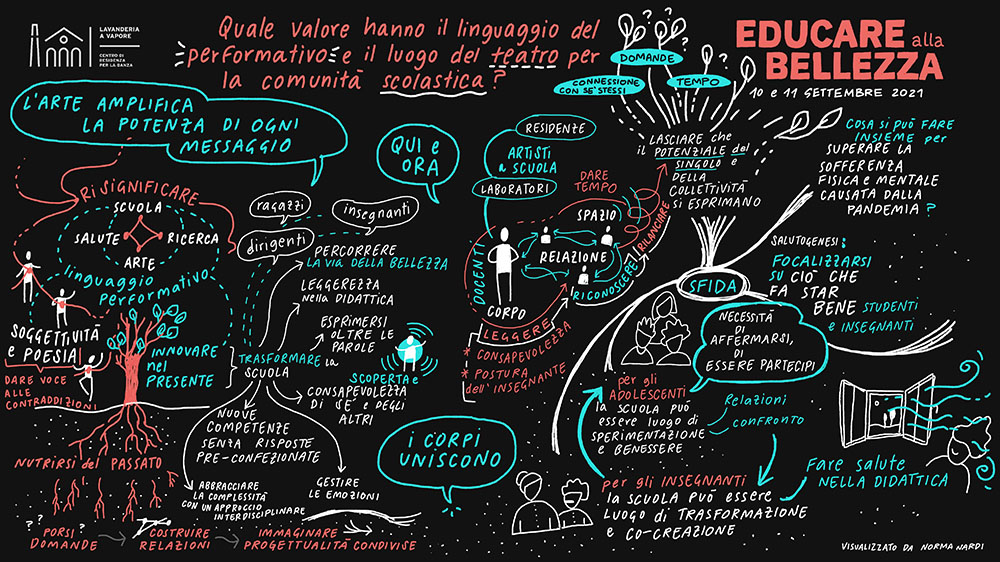 LAVANDERIA
A VAPORE
CENTRO DI
RESIDENZA
PER LA DANZA
Quale valore hanno il linguaggio del
performativo e il luogo del teatro per
la comunità scolastica?
EDUCARE alla
BELLEZZA
10 e 11 SETTEMBRE 2021
L'ARTE AMPLIFICA
LA POTENZA DI OGNI
MESSAGGIO
RiSIGNIFICARE
SCUOLA
SALUTE
RICERCA
ARTE
linguaggio
performativo
SOGGETTIVITÀ
e POESIA
DARE VOCE
ALLE
CONTRADDIZIONI
INNOVARE
nel
PRESENTE
NUTRIRSI del PASSATO
? ? ?
PORSI
DOMANDE
COSTRUIRE
RELAZIONI
IMMAGINARE
PROGETTUALITÀ CONDIVISE
QUI e
ORA
ragazzi
insegnanti
dirigenti
PERCORRERE
LA VIA DELLA BELLEZZA
LEGGEREZZA
nella DIDATTICA
ESPRIMERSI
OLTRE LE
PAROLE
TRASFORMARE la
SCUOLA
SCOPERTA e
CONSAPEVOLEZZA
DI SÉ e DEGLI
ALTRI
NUOVE
COMPETENZE
SENZA RISPOSTE
PRE-CONFEZIONATE
ABBRACCIARE
LA COMPLESSITÀ
CON UN APPROCCIO
INTERDISCIPLINARE
GESTIRE
LE EMOZIONI
i CORPI
UNISCONO
RESIDENZE
ARTISTI
a SCUOLA
LABORATORI
DARE
TEMPO
DOCENTI
SPAZIO
RELAZIONE
CORPO
LEGGERE
RICONOSCERE
RILANCIARE
* CONSAPEVOLEZZA
* POSTURA
dell'INSEGNANTE
DOMANDE
CONNESSIONE
CON SE' STESSI
TEMPO
? ? ?
LASCIARE che
il POTENZIALE del
SINGOLO e
DELLA
COLLETTIVITÀ
SI ESPRIMANO
SFIDA
COSA SI PUÒ FARE
INSIEME per
SUPERARE LA
SOFFERENZA
FISICA e MENTALE
CAUSATA DALLA
PANDEMIA?
SALUTOGENESI:
FOCALIZZARSI
SU CIÒ CHE
FA STAR
BENE STUDENTI
e INSEGNANTI
NECESSITÀ
DI
AFFERMARSI,
DI
ESSERE PARTECIPI
per gli
ADOLESCENTI
la SCUOLA PUÒ
ESSERE LUOGO di
SPERIMENTAZIONE
e BENESSERE
Relazioni
CONFRONTO
per gli INSEGNANTI
la SCUOLA PUÒ ESSERE
LUOGO di TRASFORMAZIONE
e CO-CREAZIONE
Fare salute
NELLA DIDATTICA
VISUALIZZATO DA NORMA NARDI